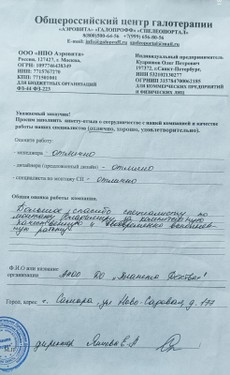 Общероссийский центр галотерапии
«АЭРОВИТА» «ГАЛОПРОФФ» «СПЕЛЕОПОРТАЛ»
ООО «НПО Аэровита»
Россия, 127427, г. Москва,
ДЛЯ БЮДЖЕТНЫХ ОРГАНИЗАЦИЙ
ФЗ-44 ФЗ-223
Индивидуальный предприниматель
Кудрявов Олег Петрович
197372, г.Санкт-Петербург,
ДЛЯ КОММЕРЧЕСКИХ ПРЕДПРИЯТИЙ
И ФИЗИЧЕСКИХ ЛИЦ
Уважаемый заказчик!
Просим заполнить анкету-отзыв о сотрудничестве с нашей компанией и качества
работы наших специалистов (отлично, хорошо, удовлетворительно).
Оцените работу:
- менеджера - отлично
- дизайнера (предложенный дизайн) - отлично
- специалиста по монтажу СП - отлично
Общая оценка работы компании:
Большое спасибо специалисту по
монтажу за
качественную и своевременно выполнен-
ную работу.
Ф.И.О или название
организации ДО «Планета Детства»
Город, адрес г. Самара, ул. Ново-Садовая д.
директор